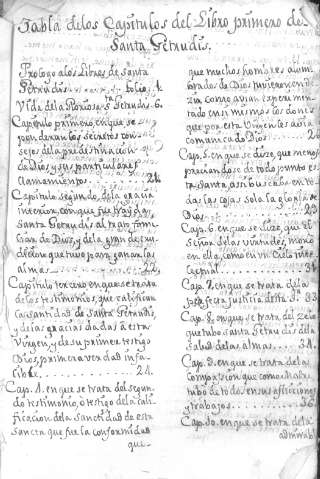 Tabla delos Capitulos del Libro primero de
Santa Getrudis.
Prologo alos Libros de Santa
Getrudis folio. 1.
Vida dela Gloriosa S. Getrudis. 6.
Capitulo primero, en que se
ponderan los secretos con-
sejos dela predestinacion
de Dios y sus particulares
llamamientos 21.
Capitulo segundo, dela gracia
interior, con que fue trayda
Santa Getrudis al trato fami-
liar de Dios, y dela gran
que tuvo para ganar las
almas
Capitulo tercero en que se trata
delos testimonios, que califican
la santidad de Santa Getrudis,
y de las gracias dadas a esta
Virgen, y de su primer testigo
Dios, primera verdad infa-
lible 24.
Cap. 4. en que se trata del segun-
do testimonio, o testigo dela cali-
ficacion dela sanctidad de esta
sancta que fue la conformidad
que
que muchos hombres alum-
brados de Dios tuvieron en de-
zir como avian esperimen-
tado en si mismos los dones
que por esta Virgen les avia
comunicado Dios
Cap. 5. en que se dize, que menos
preciandose de todo punto es-
ta Santa, atribuye en to-
das las cosas sola la gloria de
Dios
Cap. 6. en que se dize, que el
señor delas virtudes, moró
en ella, como en un Cielo inte-
lectual 31.
Cap. 7. en que se trata dela
perfecta justicia 33.
Cap. 8. en que se trata del zelo
que tubo Santa Getrudis dela
salud delas almas 34.
Cap. 9. en que se trata dela
compasion que
tubo de todos en sus aflicciones
y trabajos 36.
Cap. 10. en que se trata dela
admirab